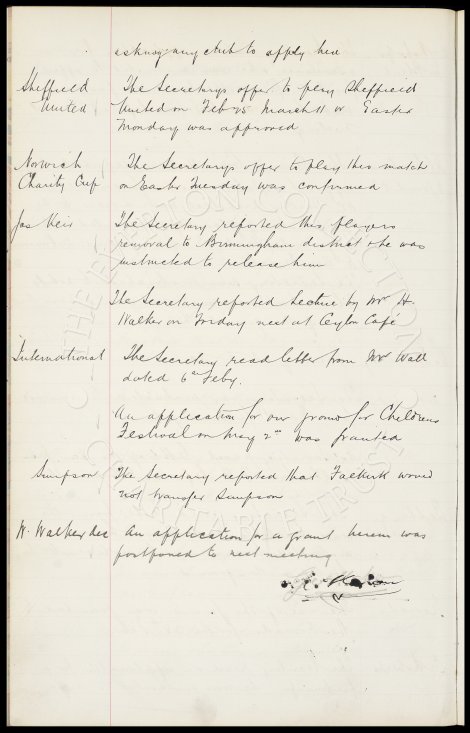 asking any club to apply here
Sheffield The Secretarys offer to play Sheffield
United United on Feb 25 March 11 or Easter
Monday was approved
Norwich The Secretarys offer to play this match
Charity Cup on Easter Tuesday was confirmed
Jas Weir The Secretary reported this players
removal to Birmingham district & he was
instructed to release him
The Secretary reported Lecture by Mr H.
Walker on Friday next at Ceylon Café
International The Secretary read letter from Mr Wall
dated 6th Feby.
An application for our ground for Childrens
Festival on May 2nd was granted
Simpson The Secretary reported that Falkirk would
not transfer Simpson
W. Walker dec An application for a grant herein was
postponed to next meeting
THE EVERTON COLLECTION
CHARITABLE TRUST